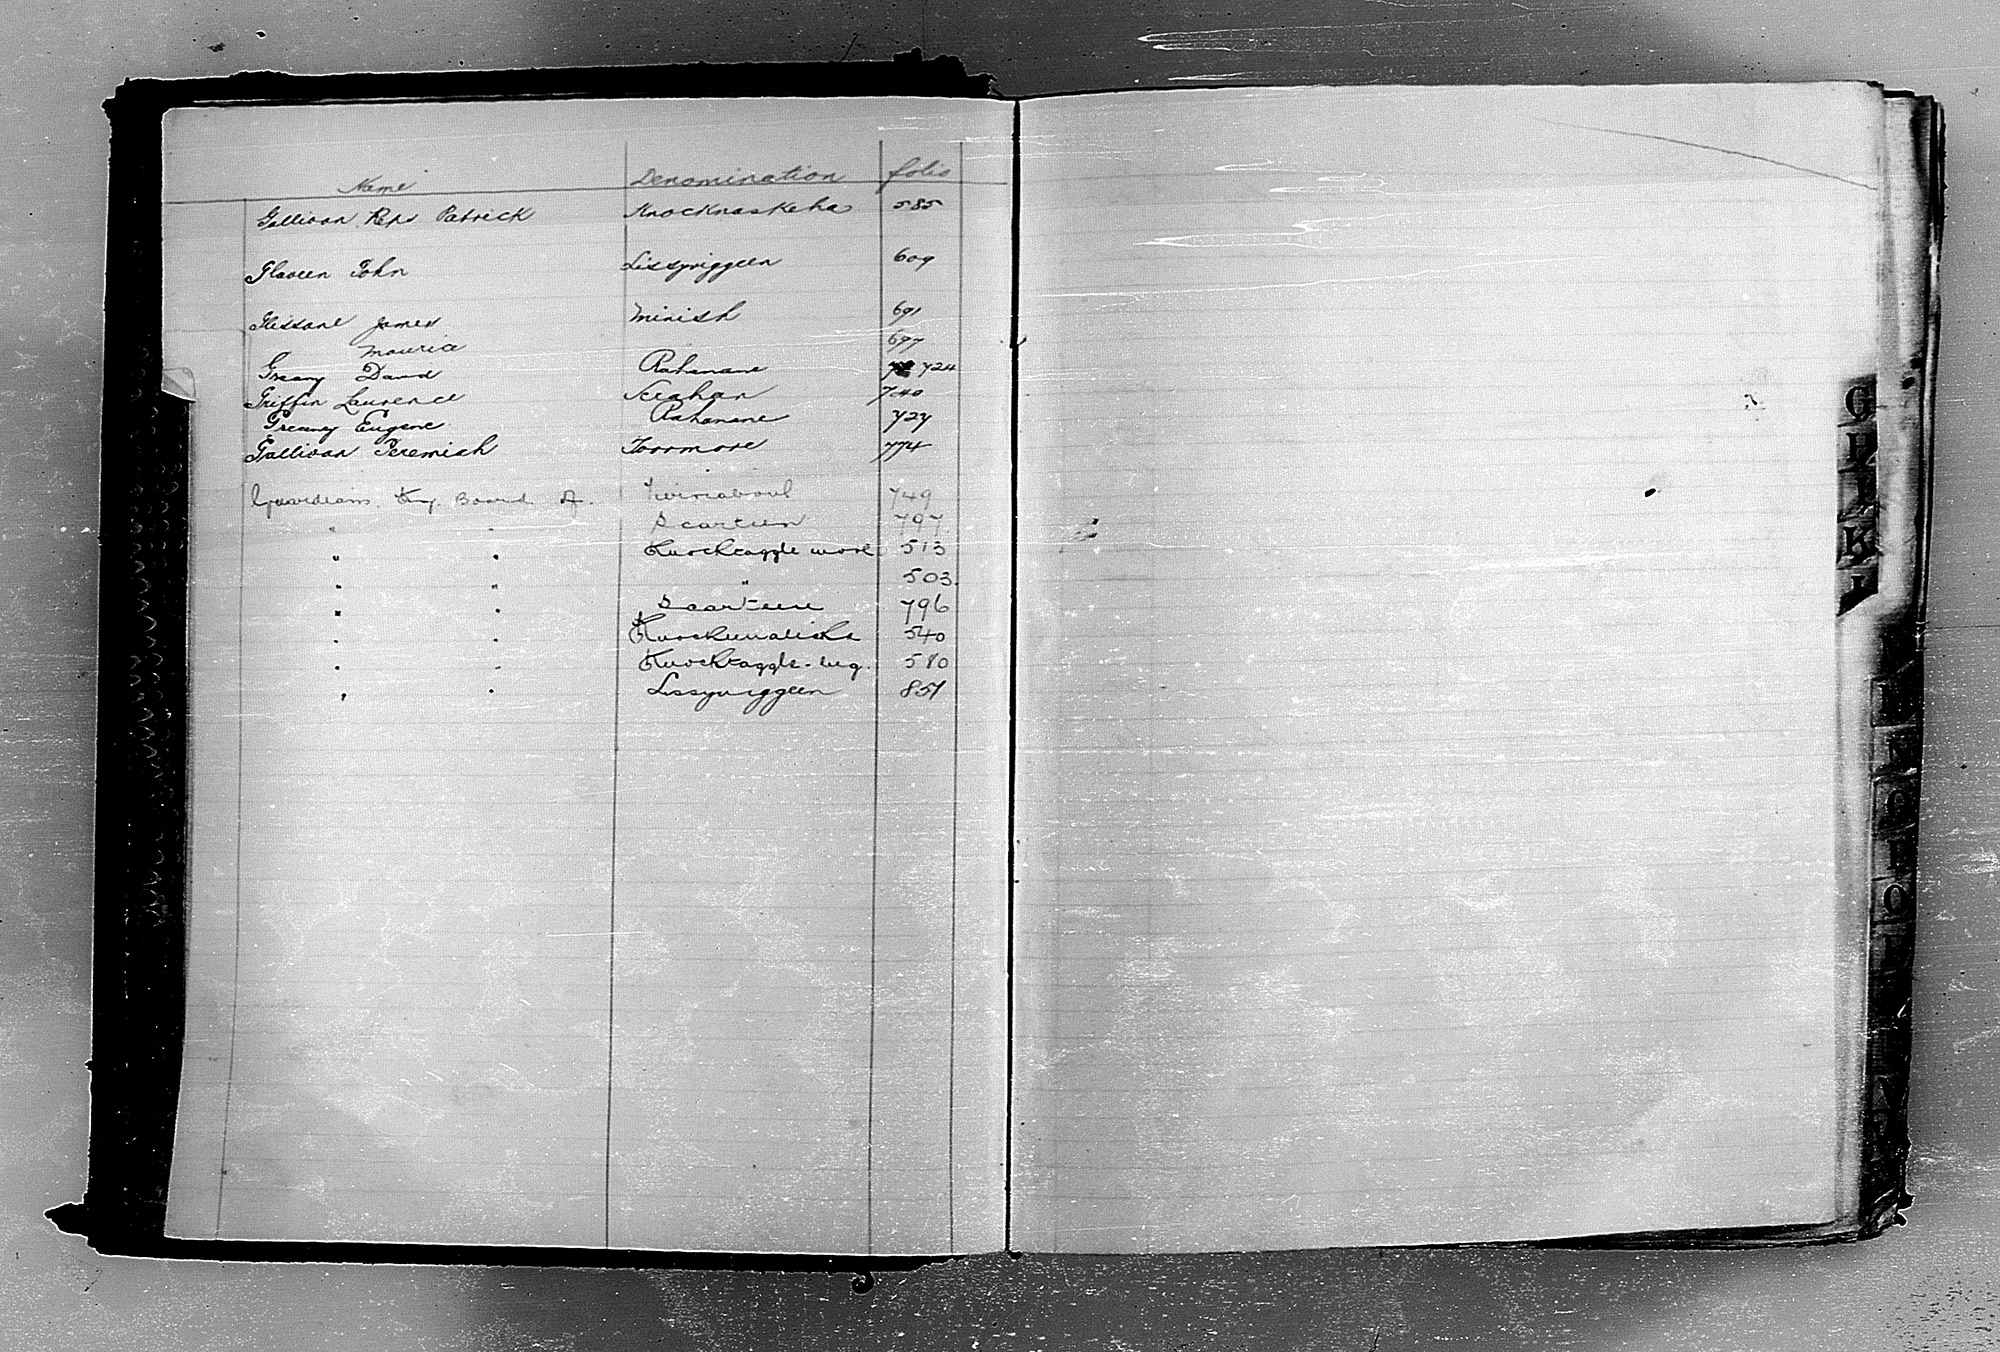 Name Denomination folio
Gallivan Reps Patrick Knocknaskeha 585
Glaveen John Lissyviggeen 609
Glissane James Minish 691
Maurice 697
Greany David Rahanane 724
Griffin Laurence Scrahan 740
Greaney Eugene Rahanane 727
Gallivan Jeremiah Toormore 774
Guardians Board of 749
" " Scarteen 797
" " Knockeaggle more 513
" " " 503
" " Scarteen 796
" " 540
" " Knockeaggle-beg. 510
" " Lissyviggeen 851
G
I
K
L
N
O